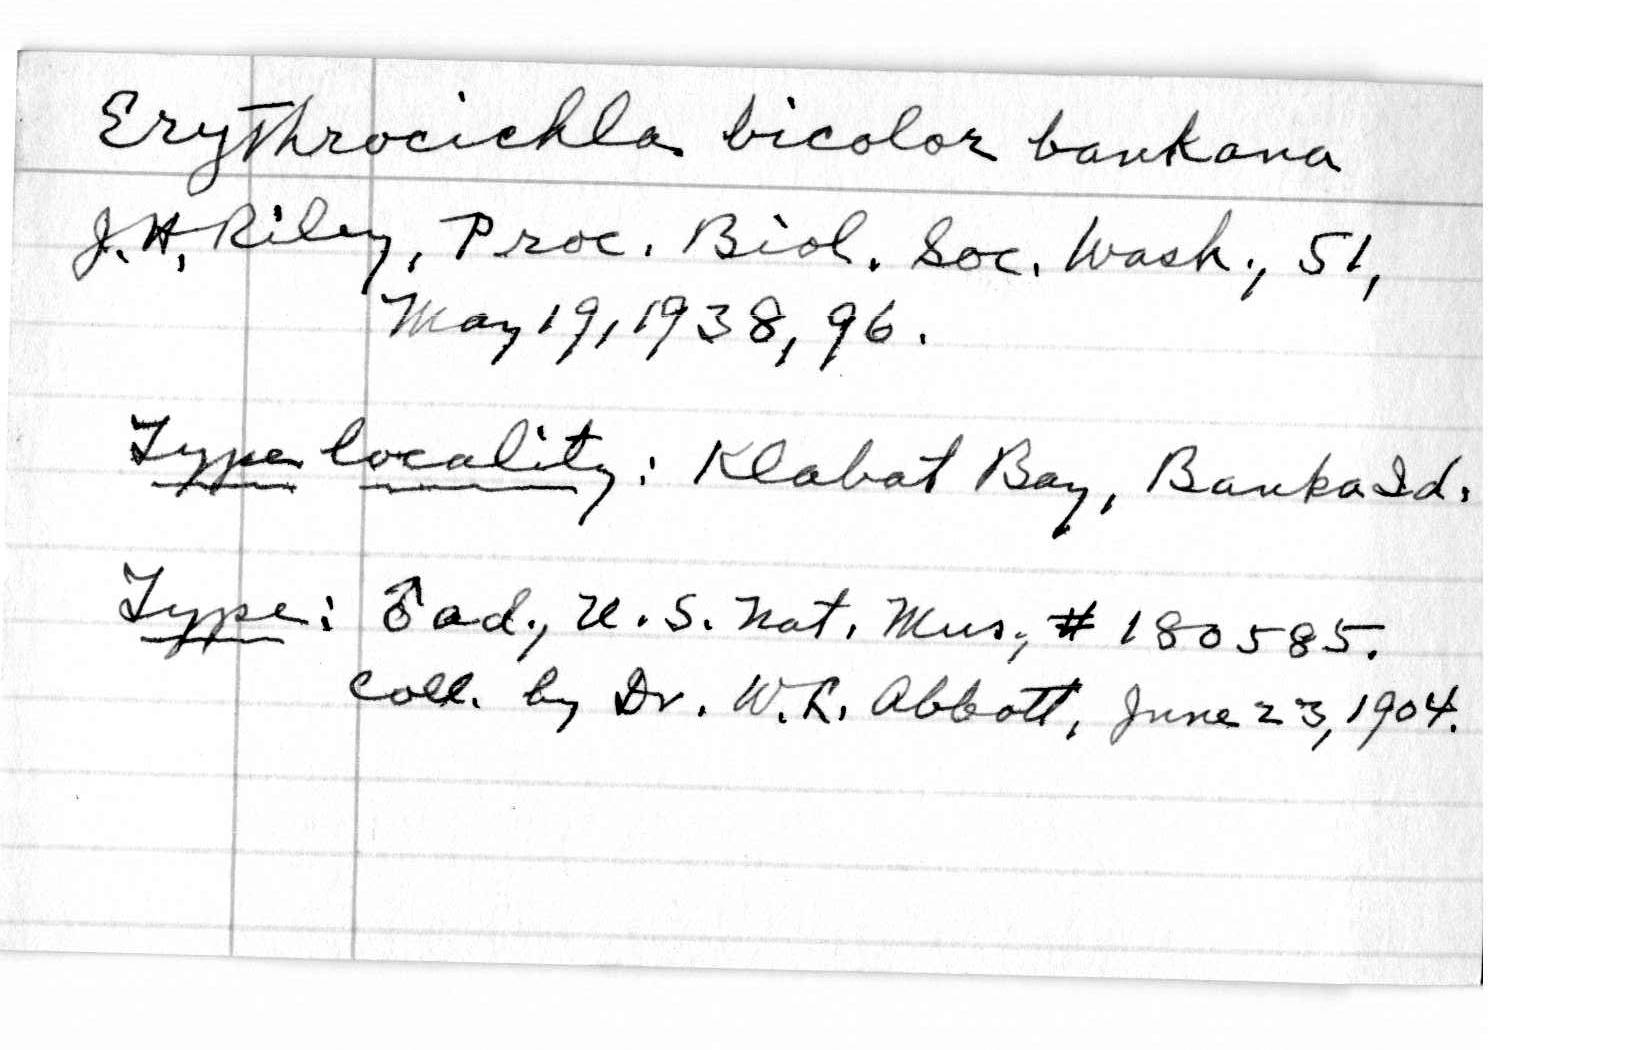 Erythrocichla bicolor bankana
J. H. Riley, Proc. Biol. Soc. Wash., 51,
May 19, 1938, 96.
Type locality: Klabat Bay, Banka Id.
Type: ♂ ad., U. S. Nat. Mus., # 180585.
coll. by Dr. W. L. Abbott, June 23, 1904.